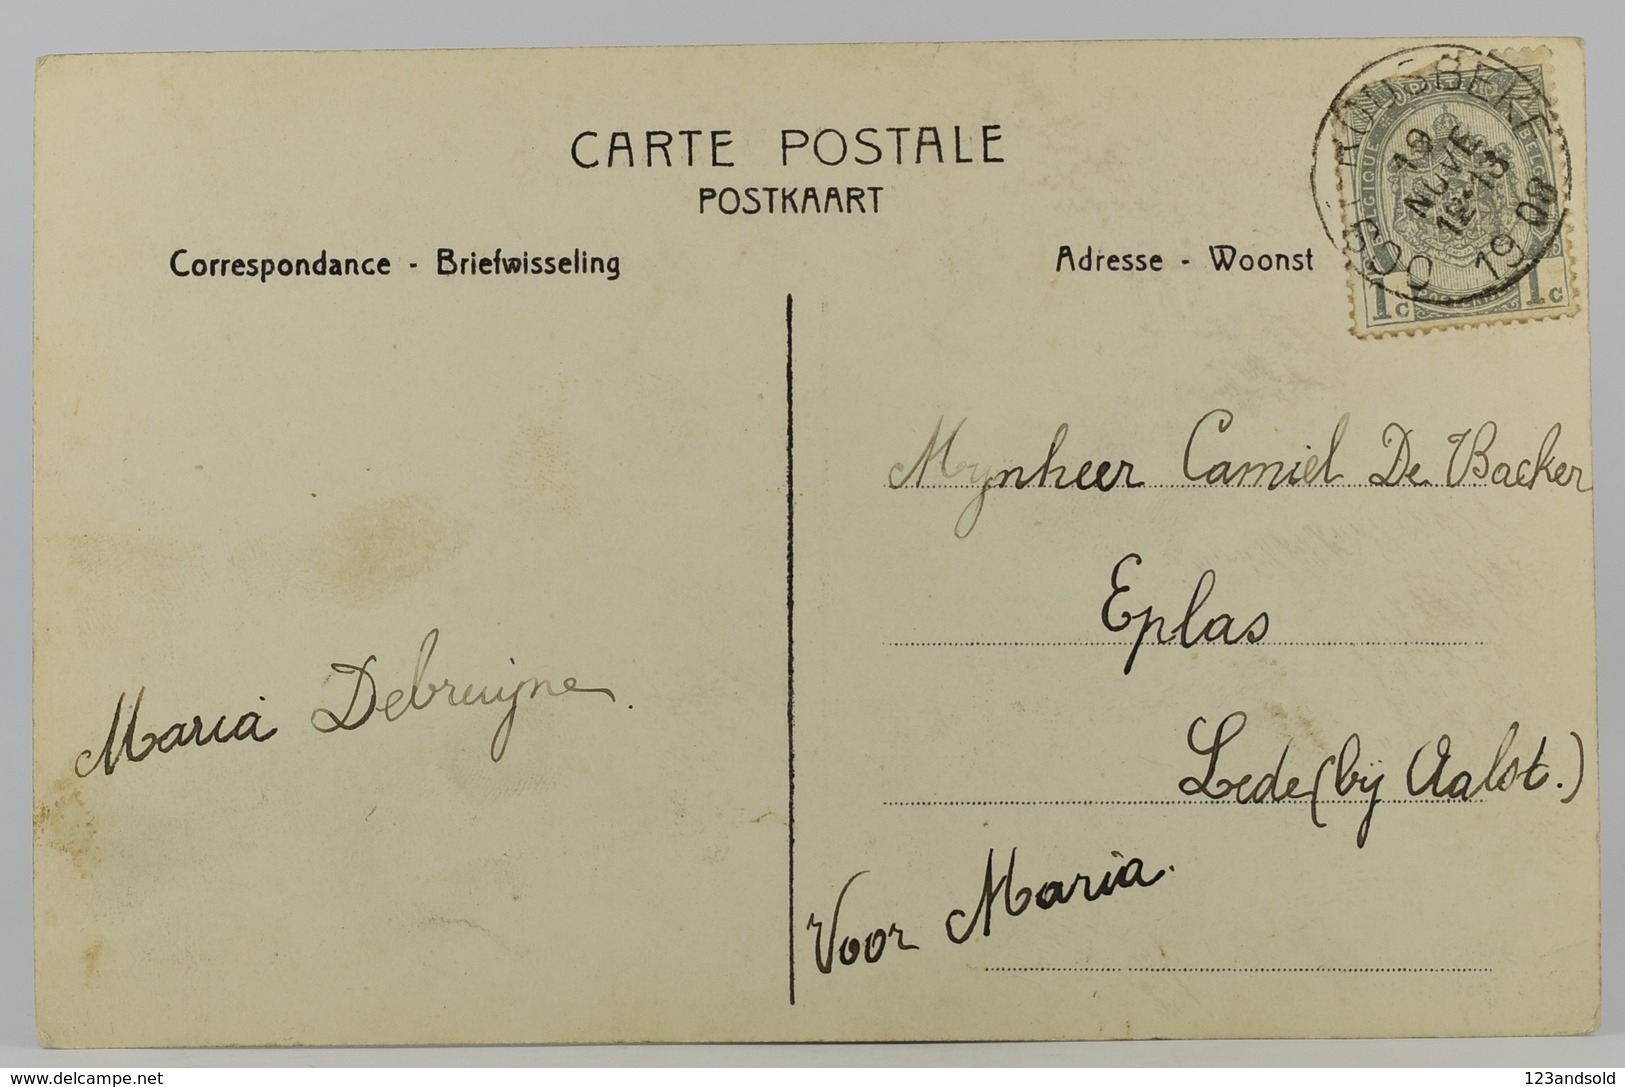 CARTE POSTALE
POSTKAART
Correspondance - Briefwisseling
Adresse - Woonst
19
NOVE
12-13
19
1c
1c
Mynheer Camiel De Backer
Eplas
Lede (by Aalst.)
Maria Debruijne.
Voor Maria.
www.delcampe.net
123andsold